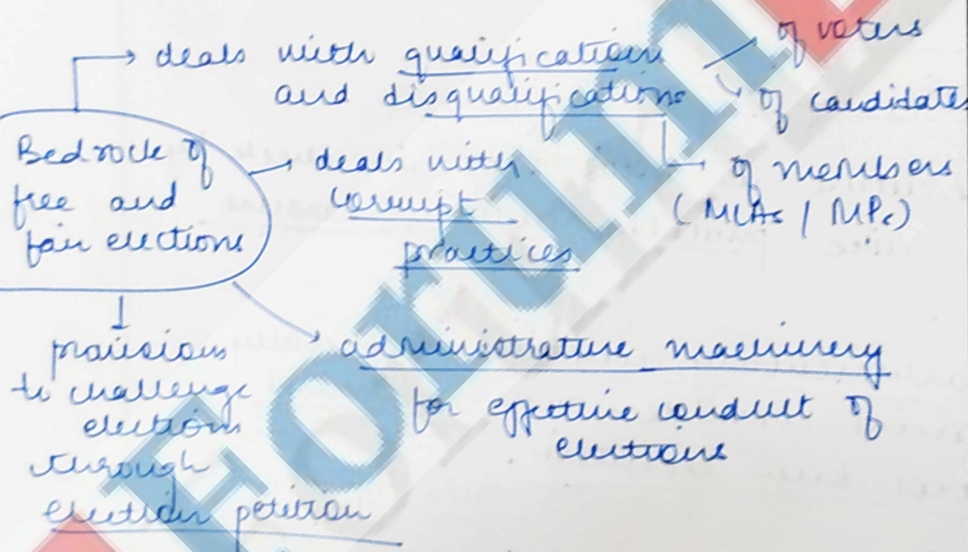 deals with qualification
and disqualifications
of voters
of candidates
of members
(MLAs / MPs)
Bedrock of
free and
fair elections
deals with
corrupt
practices
provisions
to challenge
elections
through
election petition
administrative machinery
for effective conduct of
elections
Forum